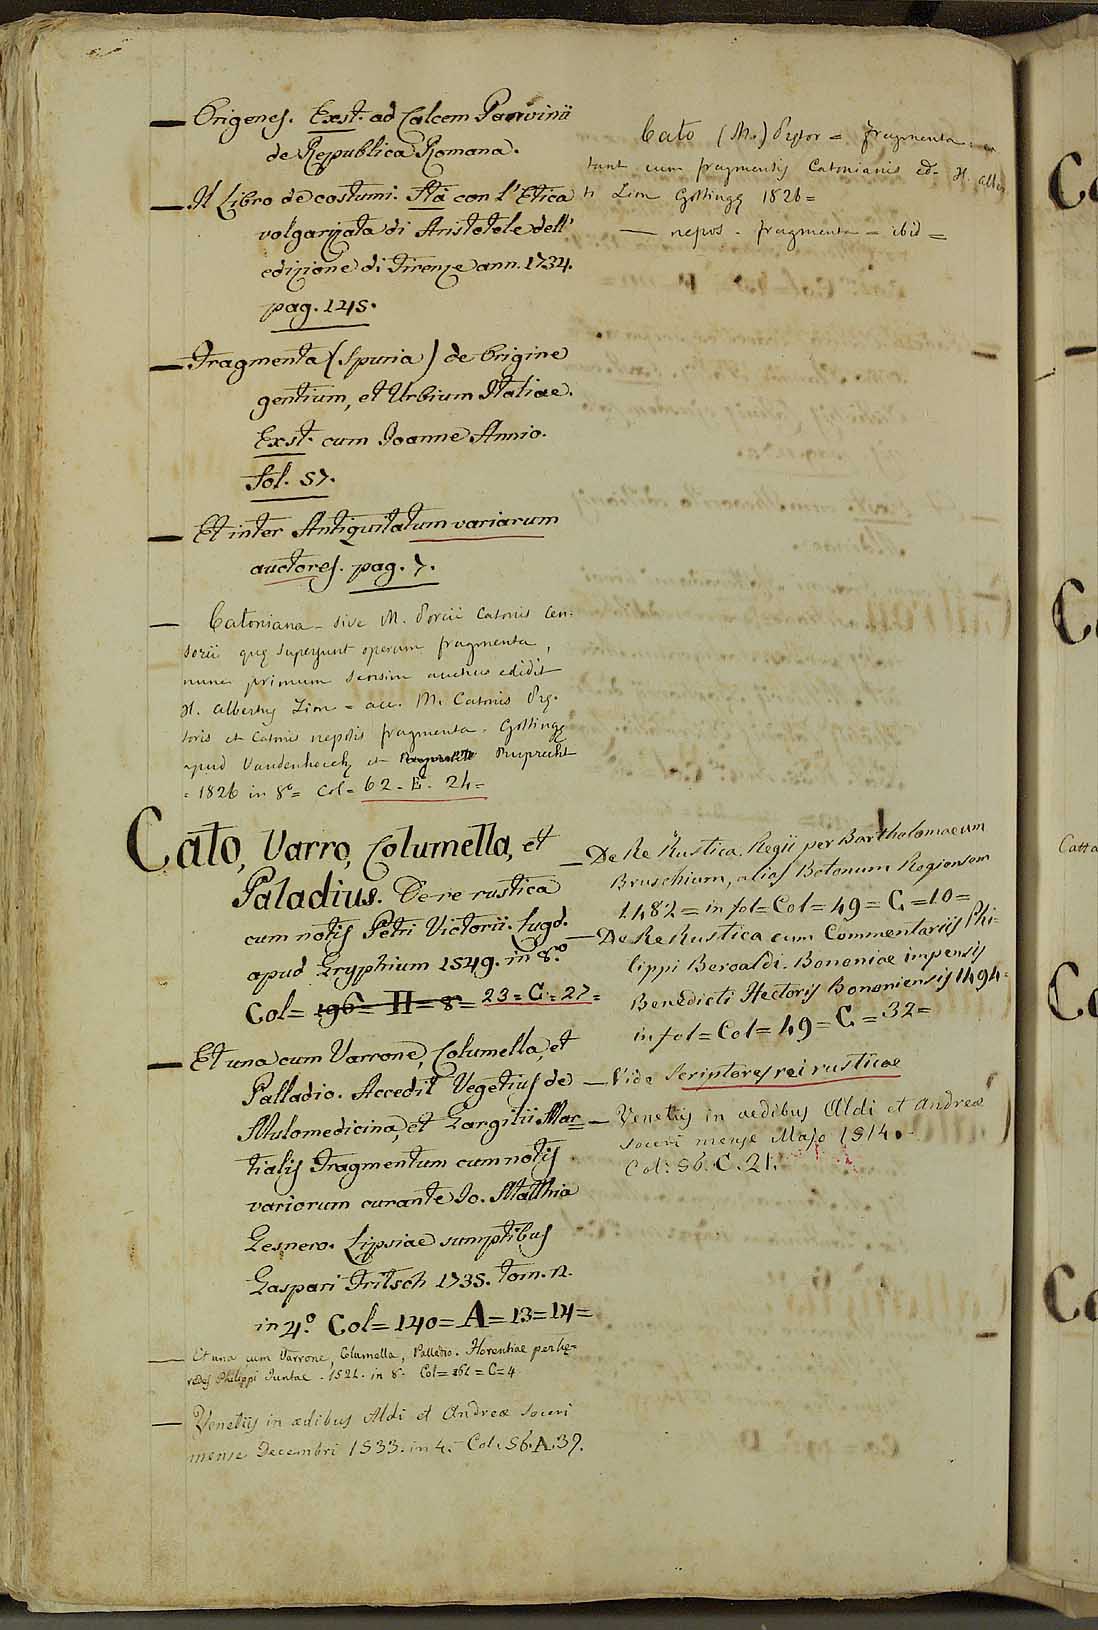 — Origenes. Exst. ad Calcem Panvinii
de Republica Romana.
— Il Libro de costumi. Sta con l'Etica
volgarizzata di Aristotele dell'
edizione di Firenze ann. 1734.
pag. 145.
— Fragmenta (Spuria) de Origine
gentium, et Urbium Italiae.
Exst. cum Joanne Annio.
fol. 57.
— Et inter Antiquitatum variarum
auctores. pag. 7.
— Catoniana – sive M. Porcii Catonis Cen-
sorii quę supersunt operum fragmenta,
nunc primum seorsim auctius edidit
H. Albertus Lion = acc. M. Catonis Prę-
toris et Catonis nepotis fragmenta. Gottingę
apud Vandenhoeck et Ruprecht
= 1826 in 8º = Col = 62 - E. 24 =
Cato, Varro, Columella, et
Paladius. De re rustica
cum notis Petri Victorii. Lugd.
apud Gryphium 1549. in 8.º
Col = 196 = H = 8 = 23 = C = 27 =
— Et una cum Varrone, Columella, et
Palladio. Accedit Vegetius de
Mulomedicina, et Gargilii Mar=
tialis Fragmentum cum notis
variorum curante Jo. Matthia
Gesnero. Lipsiae sumptibus
Gaspari Fritsch 1735. tom. 2.
in 4.º Col = 140 = A = 13 = 14 =
— Et una cum Varrone, Columella, Palladio. Florentiae per hę-
redes Philippi Juntae. 1521. in 8. Col = 161 = C = 4
— Venetiis in ædibus Aldi et Andreæ soceri
mense Decembri 1533. in 4. - Col. 56. A. 39.
Cato (M.) Prętor = fragmenta: ex
tant cum fragmentis Catonianis ed. H. Alber
ti Lion Gottingę 1826 =
— nepos - fragmenta - ibid =
— De Re Rustica. Regii per Bartholomaeum
Bruschium, alias Botonum Regiensem
1482 = in fol = Col = 49 = C = 10 =
— De Re Rustica cum Commentariis Phi-
lippi Beroaldi. Bononiae impensis
Benedicti Hectoris Bononiensis 1494 =
in fol = Col = 49 = C = 32 =
— Vide Scriptores rei rusticae
— Venetiis in ædibus Aldi et Andreæ
soceri mense Majo 1514. -
Col. 56. C. 21.
Ca
Co
Catta
Ca
Ca